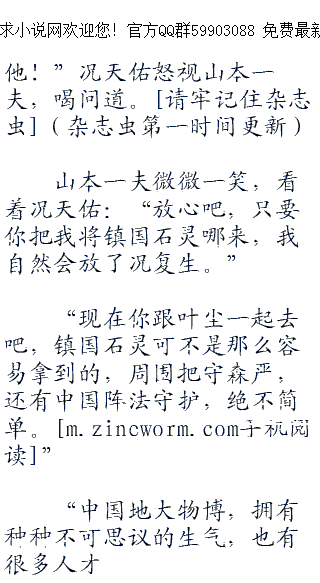 求小说网欢迎您！官方QQ群59903088 免费最新
他！”况天佑怒视山本一
夫，喝问道。[请牢记住杂志
虫]（杂志虫第一时间更新）
山本一夫微微一笑，看
着况天佑：“放心吧，只要
你把我将镇国石灵哪来，我
自然会放了况复生。”
“现在你跟叶尘一起去
吧，镇国石灵可不是那么容
易拿到的，周围把守森严，
还有中国阵法守护，绝不简
单。[m.zincworm.com手机阅
读]”
“中国地大物博，拥有
种种不可思议的生气，也有
很多人才